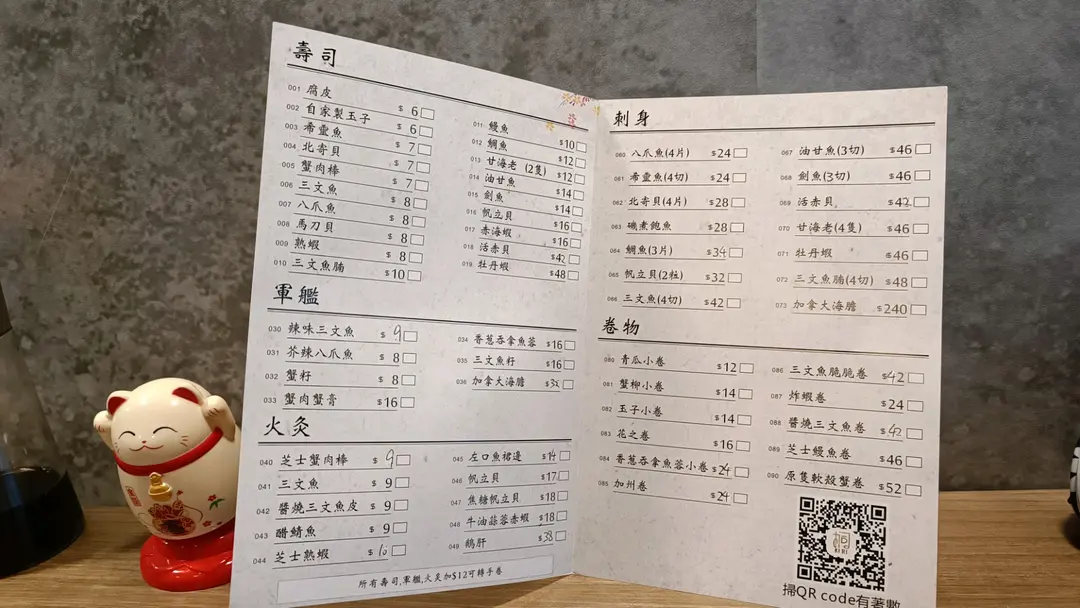 壽司
001 腐皮 $6
002 自家製玉子 $6
003 希靈魚 $7
004 北寄貝 $7
005 蟹肉棒 $7
006 三文魚 $8
007 八爪魚 $8
008 馬刀貝 $8
009 熟蝦 $8
010 三文魚腩 $10
011 鰻魚 $10
012 鯛魚 $12
013 甘海老 (2隻) $12
014 油甘魚 $14
015 劍魚 $14
016 帆立貝 $16
017 赤海蝦 $16
018 活赤貝 $42
019 牡丹蝦 $48
軍艦
030 辣味三文魚 $9
031 芥辣八爪魚 $8
032 蟹籽 $8
033 蟹肉蟹膏 $16
034 香蔥吞拿魚蓉 $16
035 三文魚籽 $16
036 加拿大海膽 $32
火灸
040 芝士蟹肉棒 $9
041 三文魚 $9
042 醬燒三文魚皮 $9
043 醋鯖魚 $9
044 芝士熟蝦 $10
045 左口魚裙邊 $14
046 帆立貝 $17
047 焦糖帆立貝 $18
048 牛油蒜蓉赤蝦 $18
049 鵝肝 $38
所有壽司,軍艦,火灸加$12可轉手卷
刺身
060 八爪魚(4片) $24
061 希靈魚(4切) $24
062 北寄貝(4片) $28
063 磯煮鮑魚 $28
064 鯛魚(3片) $34
065 帆立貝(2粒) $32
066 三文魚(4切) $42
067 油甘魚(3切) $46
068 劍魚(3切) $46
069 活赤貝 $42
070 甘海老(4隻) $46
071 牡丹蝦 $46
072 三文魚腩(4切) $48
073 加拿大海膽 $240
卷物
080 青瓜小卷 $12
081 蟹柳小卷 $14
082 玉子小卷 $14
083 花之卷 $16
084 香蔥吞拿魚蓉小卷 $24
085 加州卷 $24
086 三文魚脆脆卷 $42
087 炸蝦卷 $24
088 醬燒三文魚卷 $42
089 芝士鰻魚卷 $46
090 原隻軟殼蟹卷 $52
掃QR code有著數